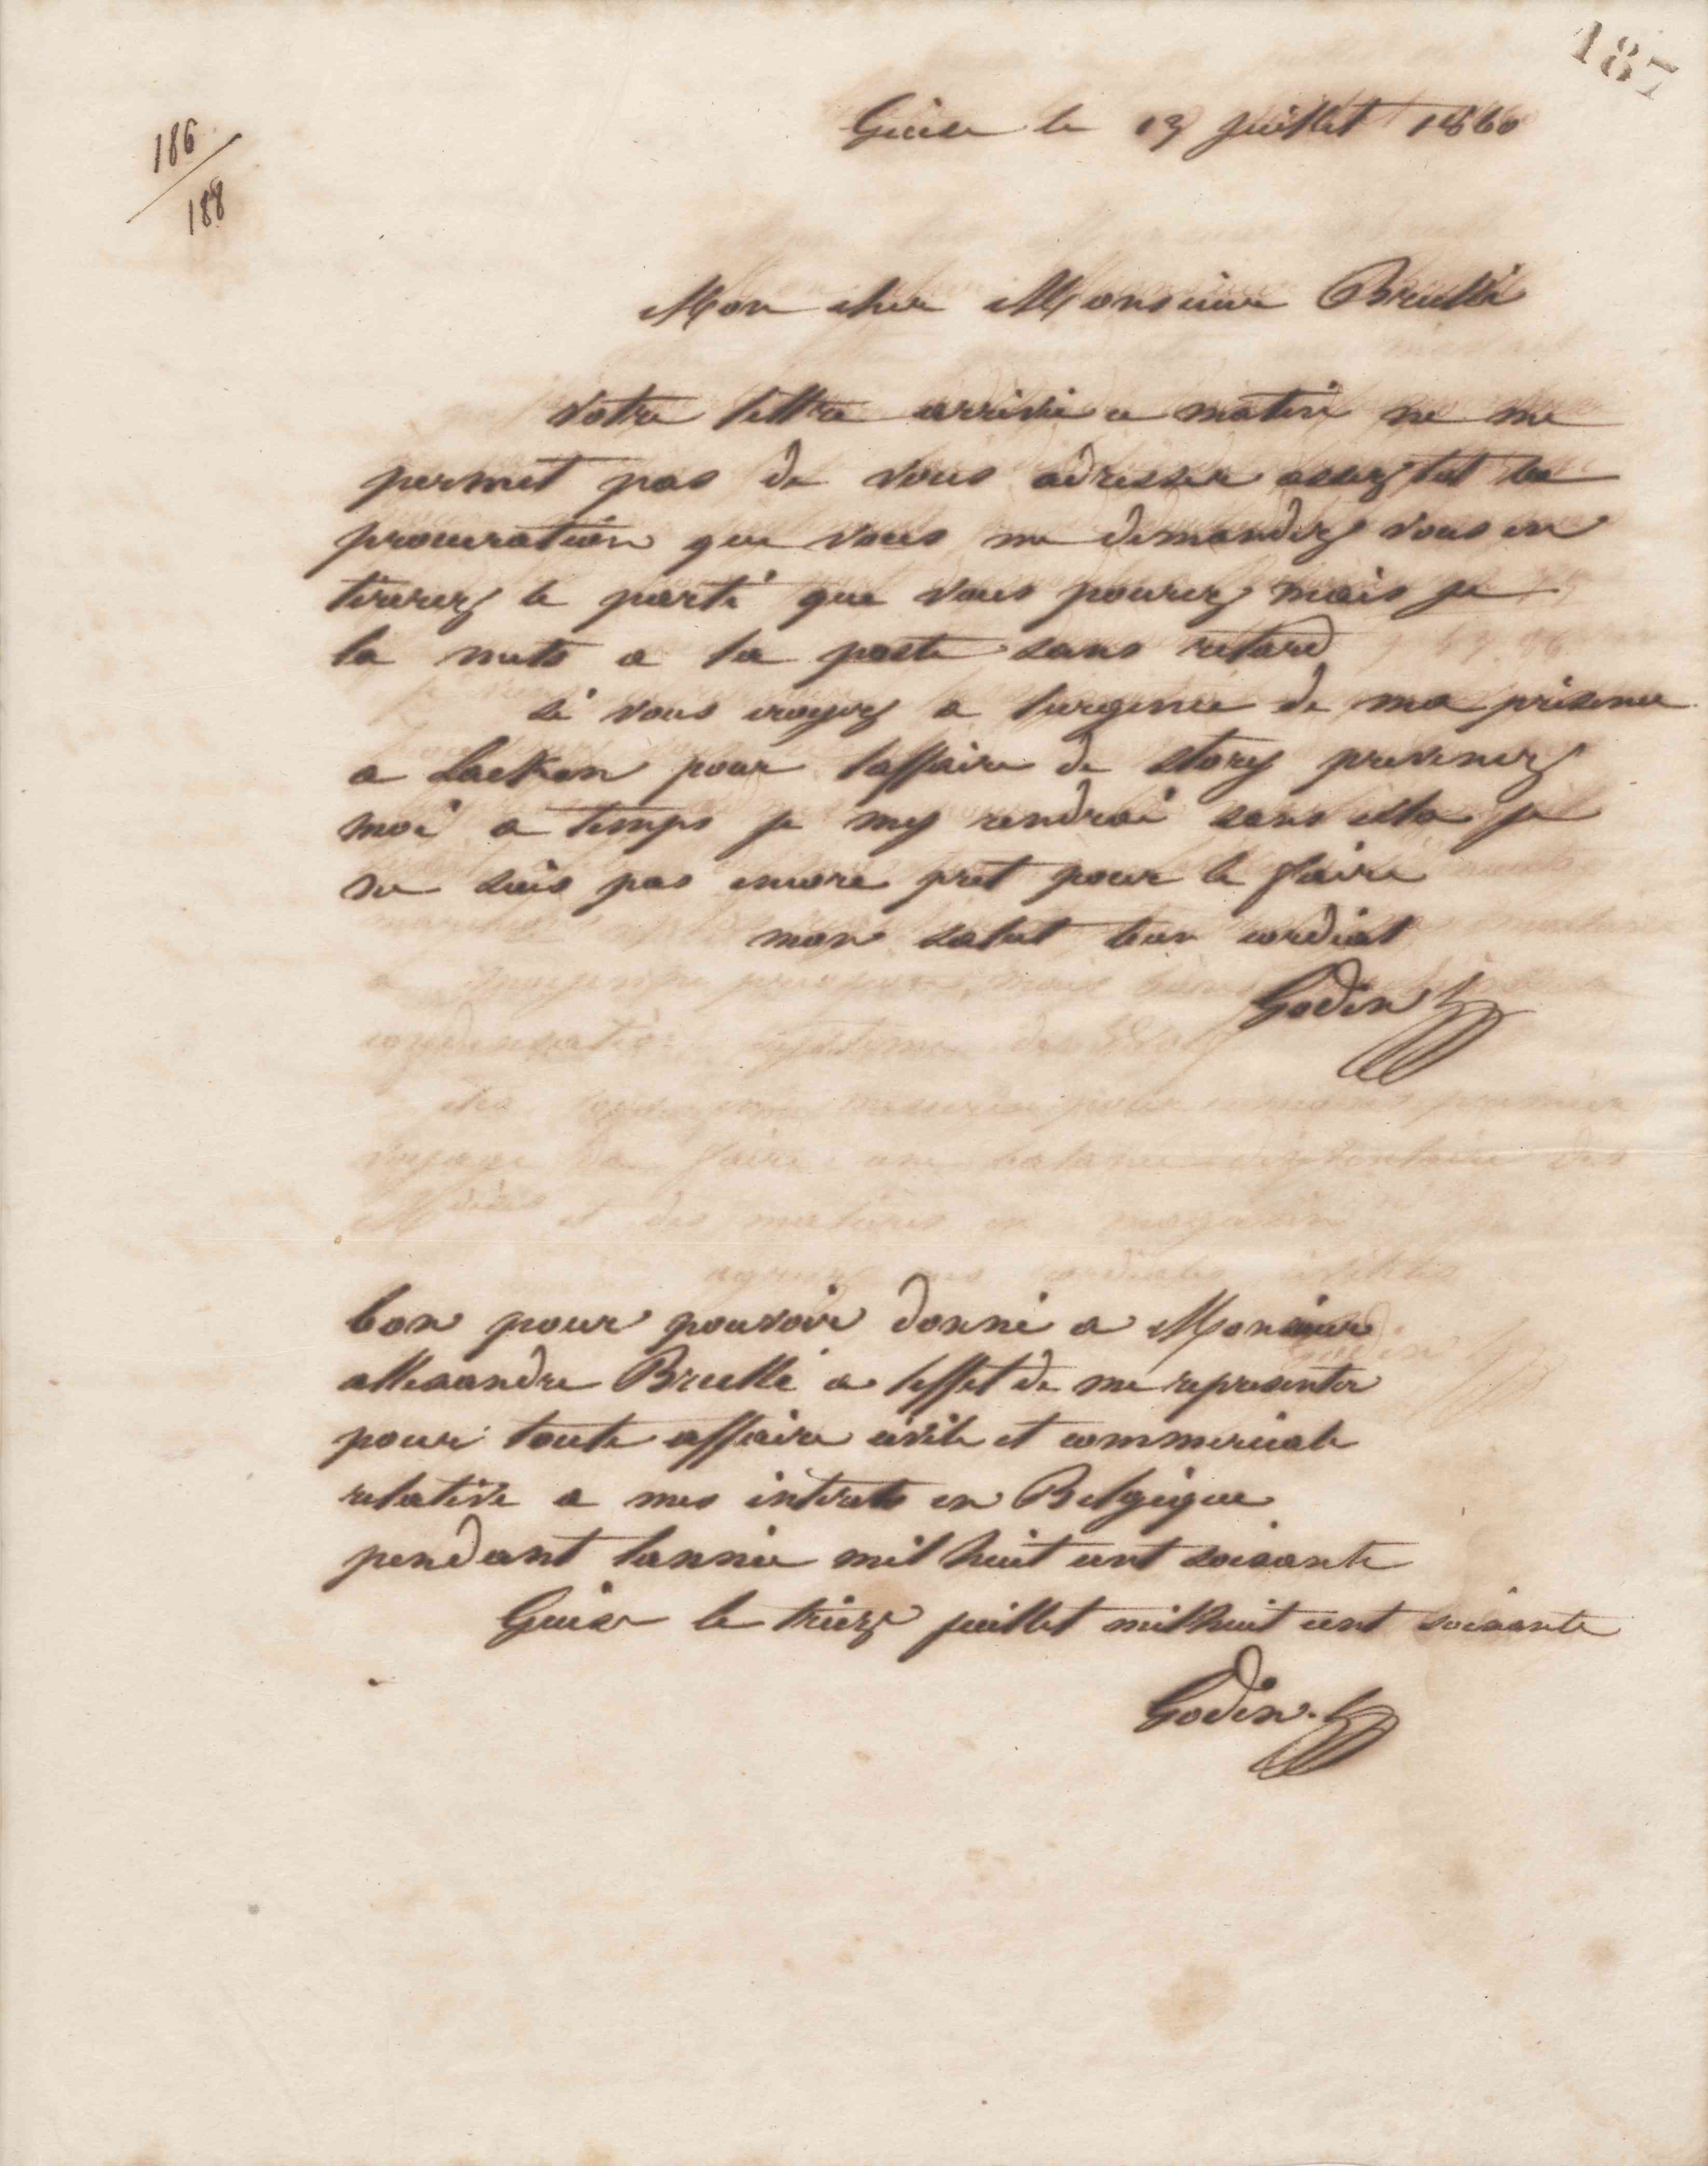 187
186
188
Guise le 13 juillet 1860
Mon cher Monsieur Brullé
votre lettre arrivée ce matin ne me
permet pas de vous adresser assez tot la
procuration que vous me demandez vous en
tirerez le parti que vous pourez mais je
la mets a la poste sans retard
si vous croyez a lurgence de ma présence
a Laeken pour laffaire de story prevenez
moi a temps je my rendrai sans cela je
ne suis pas encore pret pour le faire
mon salut bien cordial
Godin
bon pour pouvoir donné a Monsieur
allexandre Brullé a leffet de me representer
pour toute affaire civile et commerciale
relative a mes interets en Belgique
pendant lannée mil huit cent soixante
Guise le treize juillet mil huit cent soixante
Godin